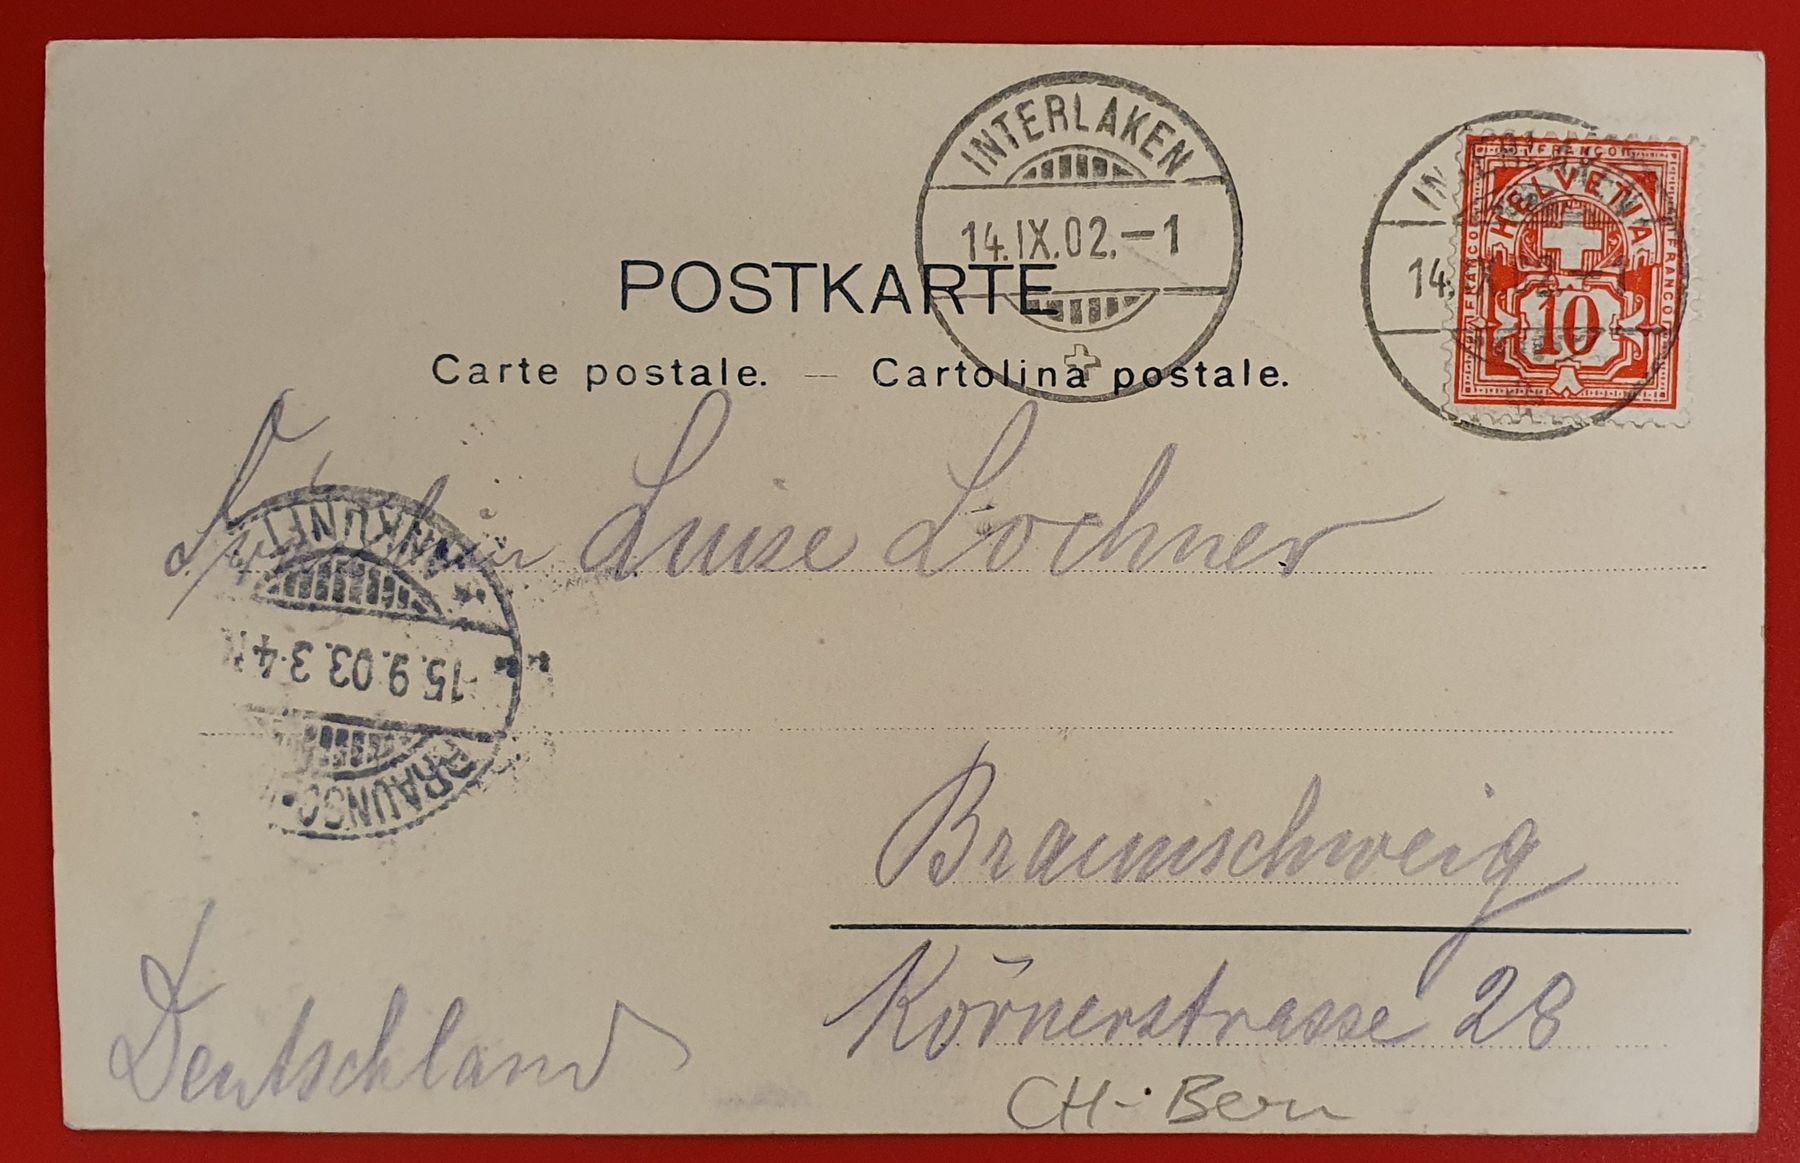 INTERLAKEN
14.IX.02.-1
FRANCO
HELVETIA
FRANCO
FRANCO
10
14.IX.02.-1
POSTKARTE
Carte postale. — Cartolina postale.
Fräulein Luise Lochner
ANKUNFT
15.9.03.3-4N
BRAUNSC
Braunschweig
Körnerstrasse 28
Deutschland
CH-Bern